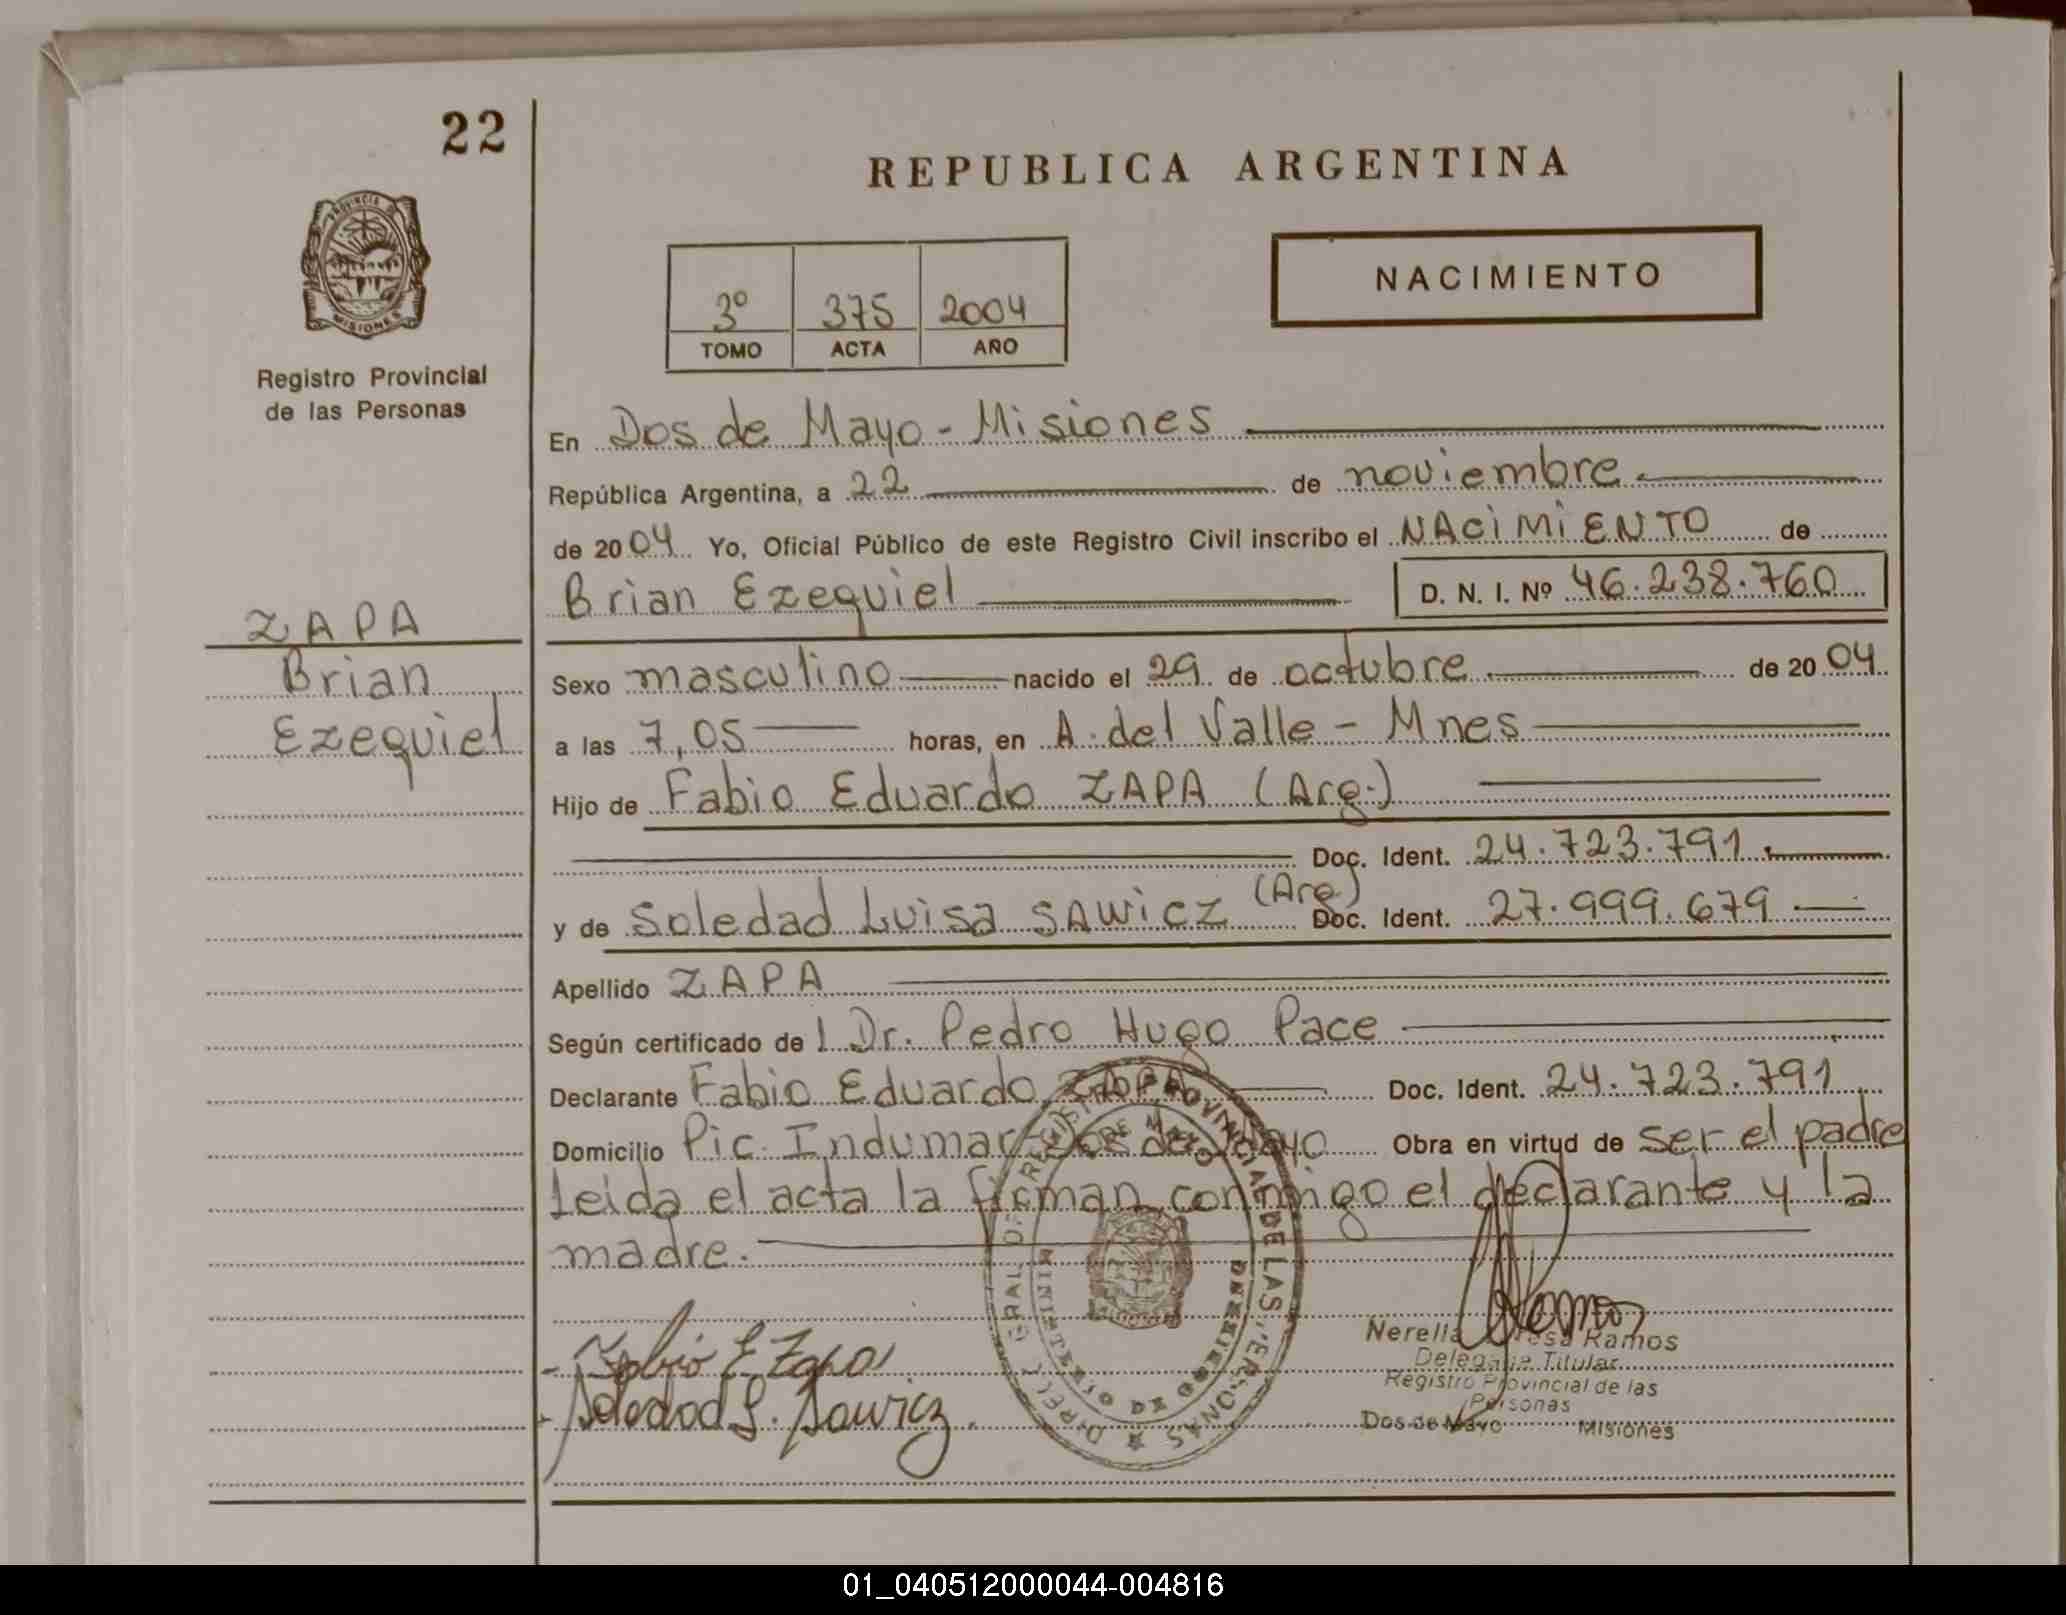 22
REPUBLICA ARGENTINA
PROVINCIA DE
MISIONES
Registro Provincial
de las Personas
NACIMIENTO
3º 375 2004
TOMO ACTA AÑO
En Dos de Mayo - Misiones
República Argentina, a 22 de noviembre
de 2004 Yo, Oficial Público de este Registro Civil inscribo el NACIMIENTO de
Brian Ezequiel D. N. I. Nº 46.238.760
ZAPA
Brian
Ezequiel
Sexo masculino nacido el 29 de octubre de 2004
a las 7,05 horas, en A. del Valle - Mnes
Hijo de Fabio Eduardo ZAPA (Arg.)
Doc. Ident. 24.723.791.
y de Soledad Luisa SAWICZ (Arg) Doc. Ident. 27.999.679
Apellido ZAPA
Según certificado de l Dr. Pedro Hugo Pace
Declarante Fabio Eduardo ZAPA Doc. Ident. 24.723.791
Domicilio Pic. Indumar Dos de Mayo Obra en virtud de ser el padre
Leida el acta la firman conmigo el declarante y la
madre.
Fabio E Zapa
Soledad L. Sawicz
Ramos
Nerella Ramos
Delegada Titular
Registro Provincial de las
Personas
Dos de Mayo Misiones
01_040512000044-004816